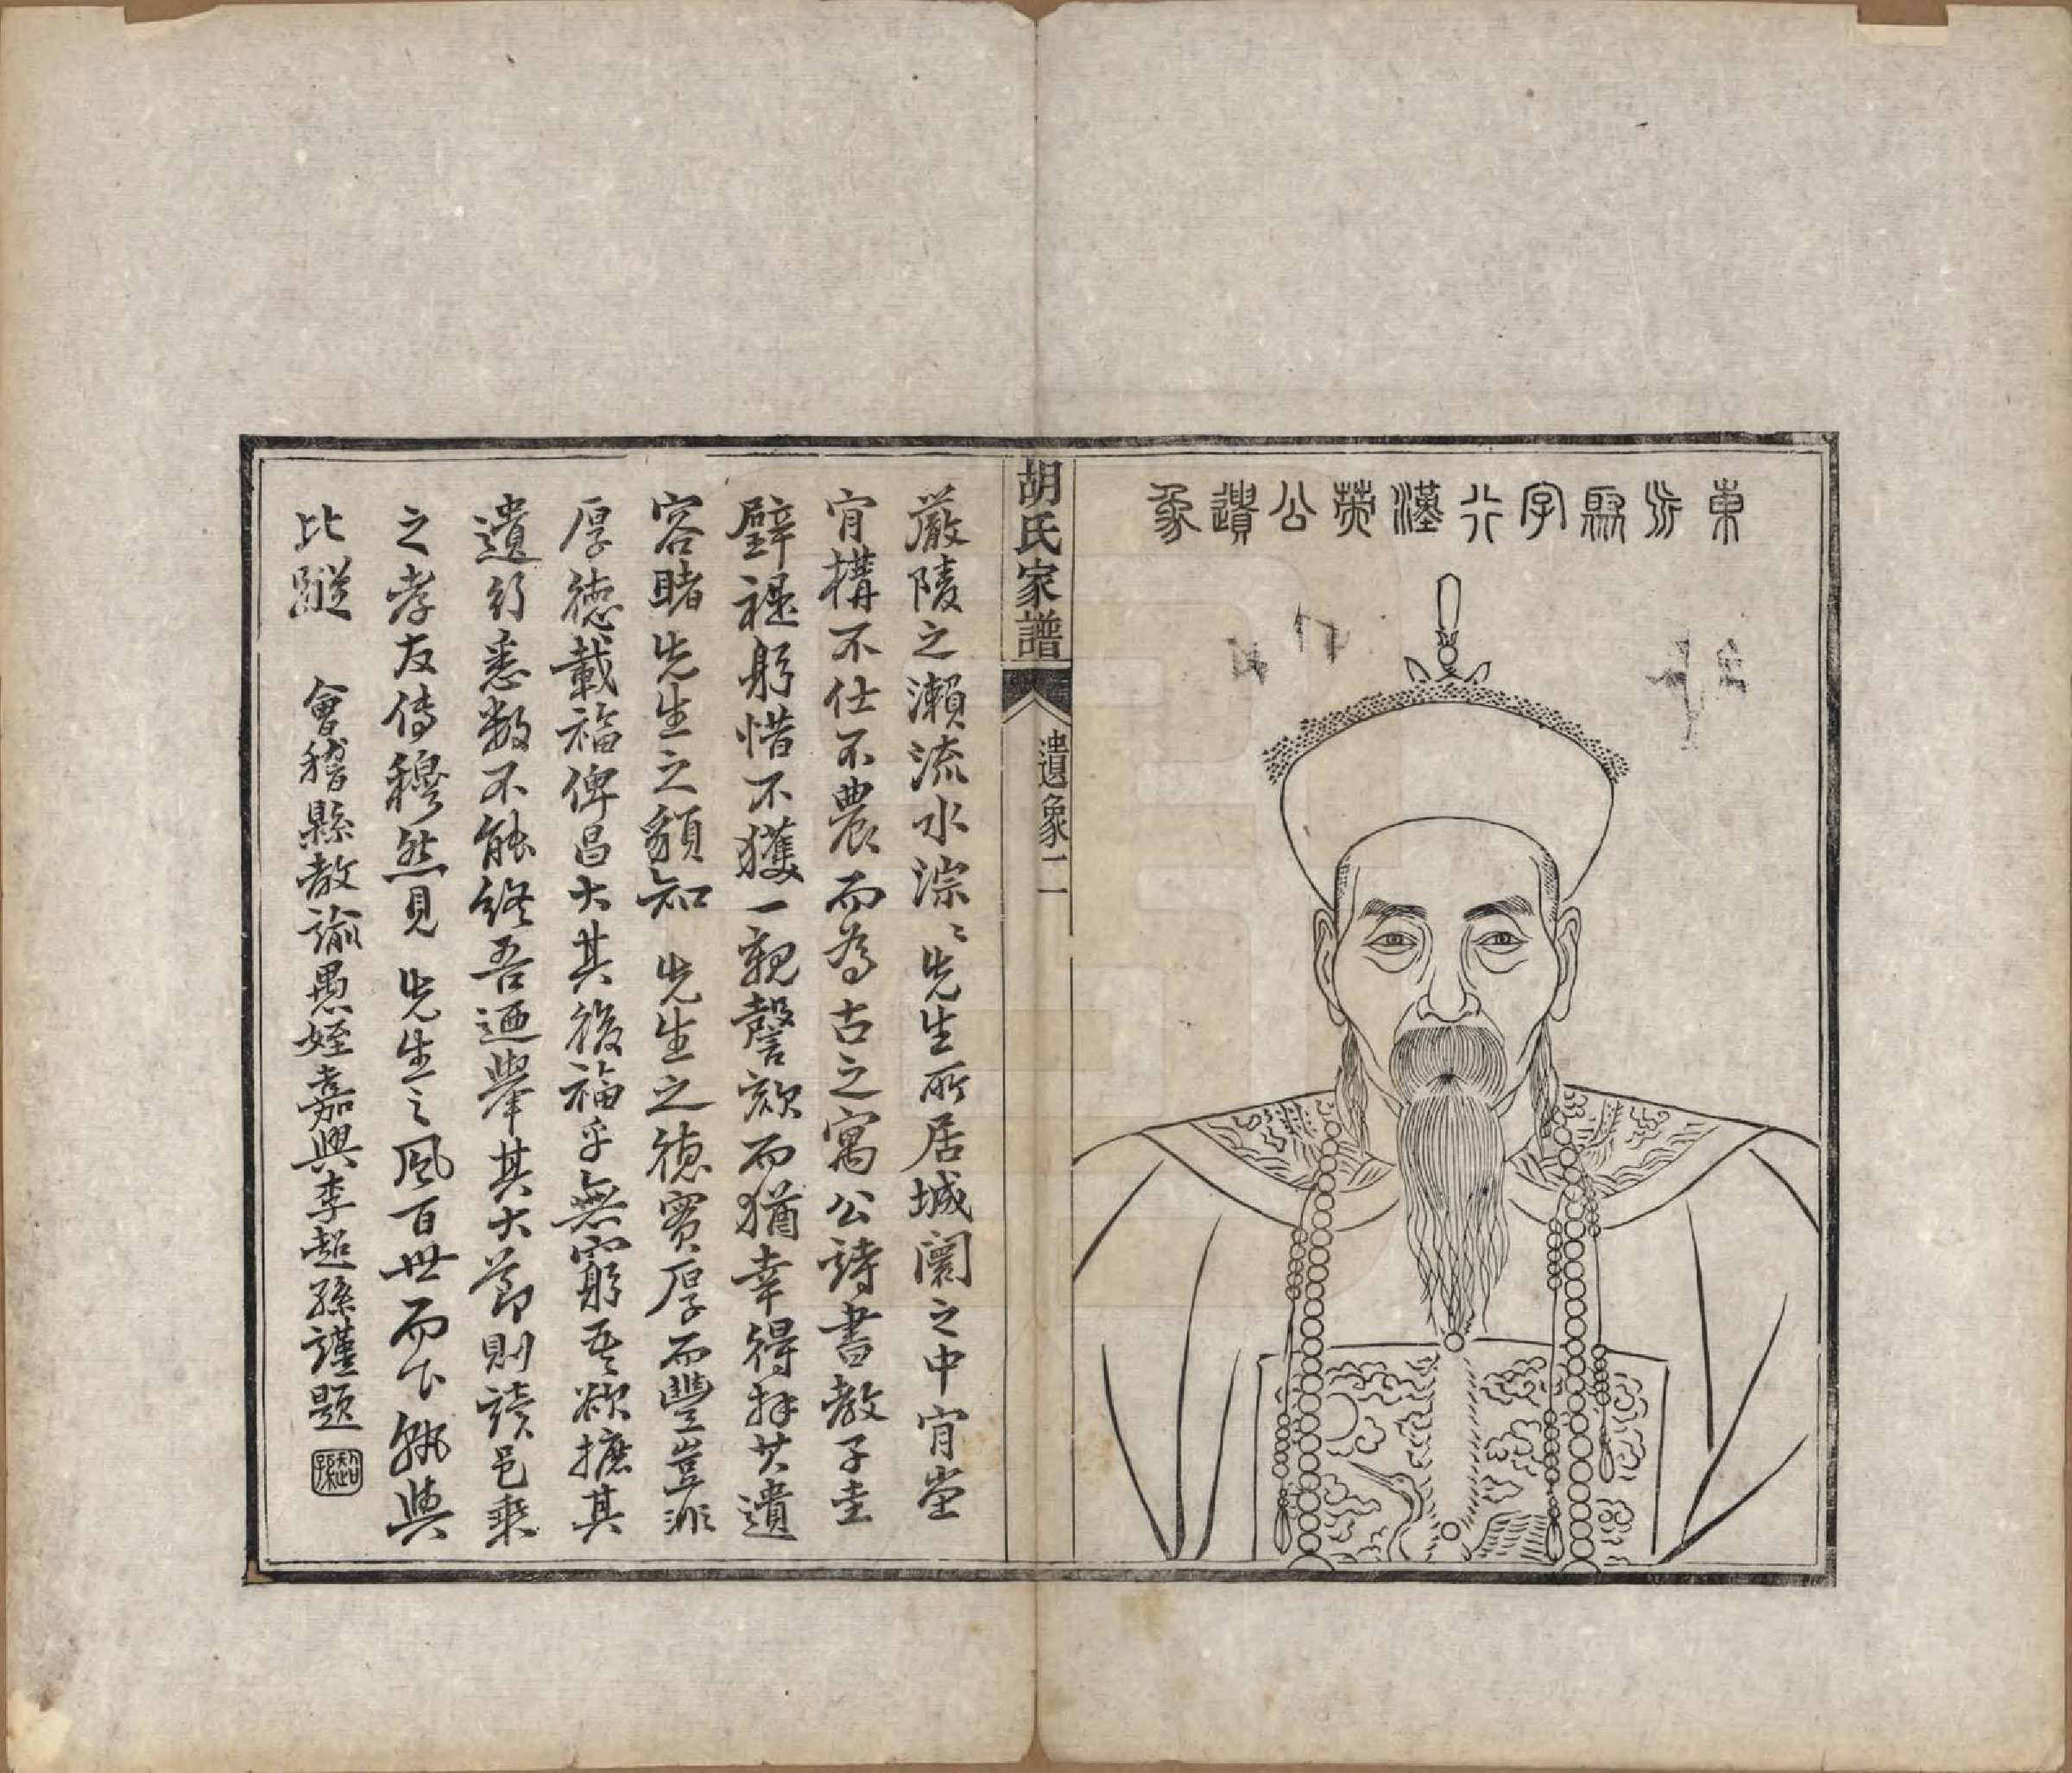 東 字 漢 公遺象
胡氏家譜
遺象二
嚴陵之瀨流水淙〻先生所居城闤之中肯堂
肯構不仕不農而為古之寓公詩書教子圭
璧禔躬惜不獲一親謦欬而猶幸得拜其遺
容睹先生之額知 先生之德實厚而豐豈非
厚德載福俾昌大其後福乎無窮吾欲摭其
遺行悉數不能終吾迺舉其大節則讀邑乘
之孝友傳穆然見 先生之風百世而下孰與
比蹤 會稽縣教諭愚姪嘉興李超孫謹題
超孫